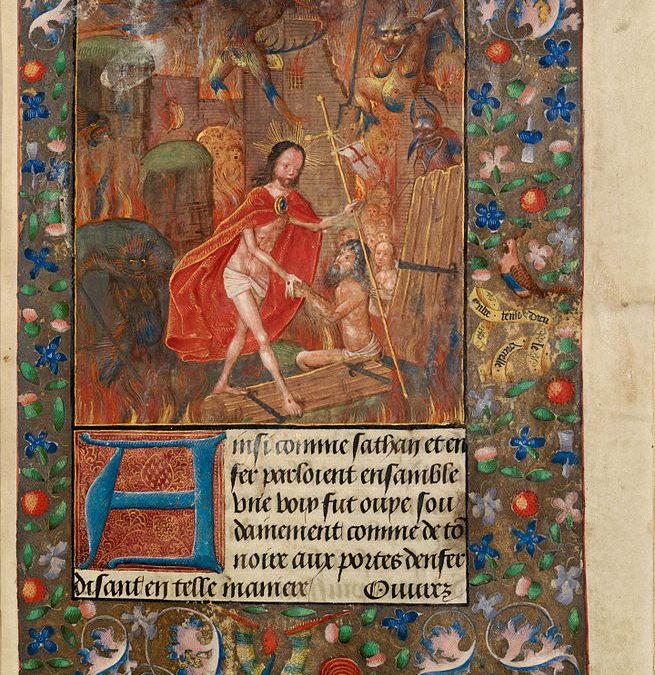 Ainsi comme sathan et en
fer parloient ensamble
vne voix fut ouye sou
dainement comme de tō
noire aux portes denfer
disant en telle maniere Ouurez